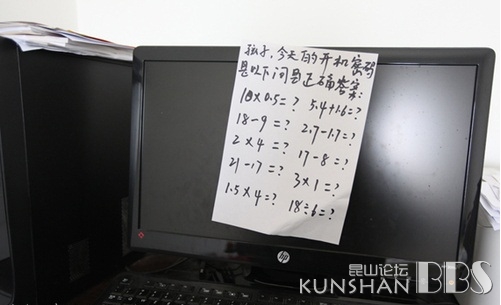 孩子，今天的开机密码
是以下问题正确答案：
10×0.5=? 5.4+1.6=?
18-9=? 2.7-1.7=?
2×4=? 17-8=?
21-17=? 3×1=?
1.5×4=? 18÷6=?
hp
昆山论坛
KUNSHAN BBS